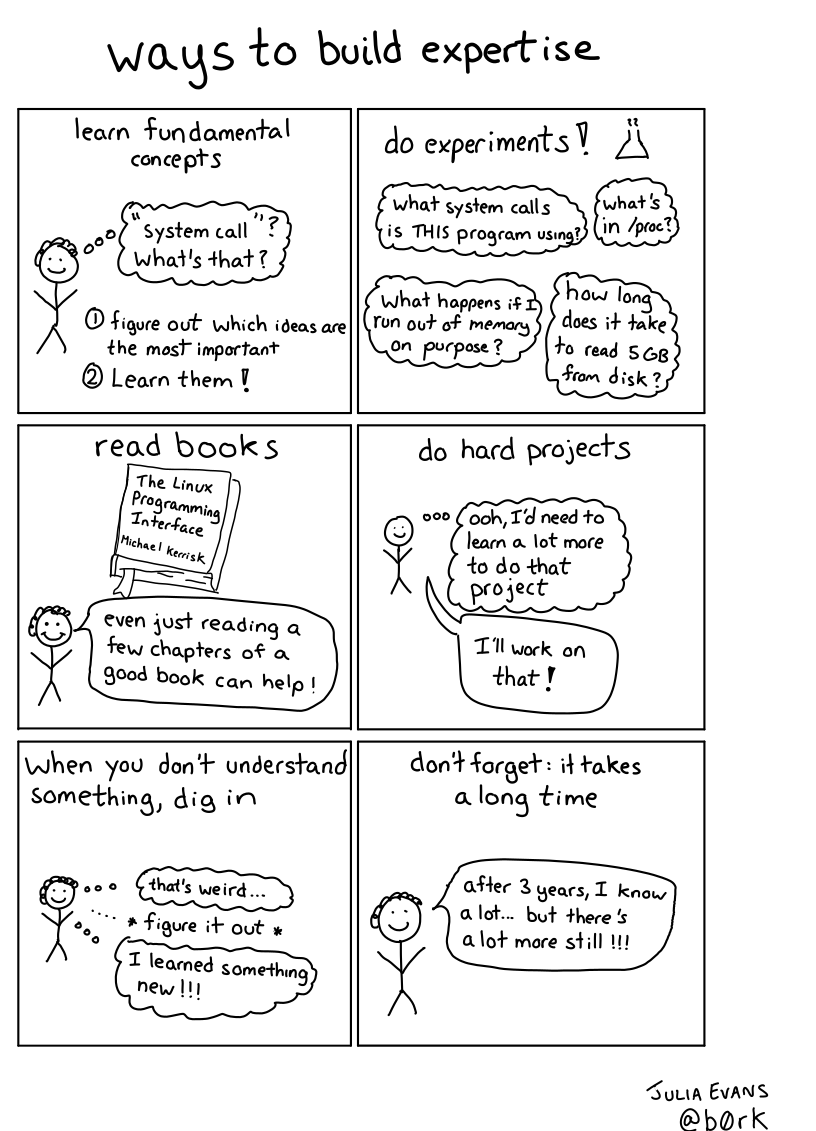 ways to build expertise
learn fundamental
concepts
"System call"?
What's that?
① figure out which ideas are
the most important
② Learn them!
do experiments!
What system calls
is THIS program using?
what's
in /proc?
What happens if I
run out of memory
on purpose?
how long
does it take
to read 5GB
from disk?
read books
The Linux
Programming
Interface
Michael Kerrisk
even just reading a
few chapters of a
good book can help!
do hard projects
ooh, I'd need to
learn a lot more
to do that
project
I'll work on
that!
When you don't understand
something, dig in
that's weird...
* figure it out *
I learned something
new!!!
don't forget: it takes
a long time
after 3 years, I know
a lot... but there's
a lot more still!!!
JULIA EVANS
@b0rk